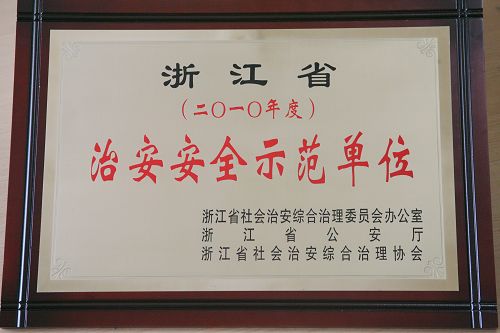 浙江省
（二〇一〇年度）
治安安全示范单位
浙江省社会治安综合治理委员会办公室
浙江省公安厅
浙江省社会治安综合治理协会